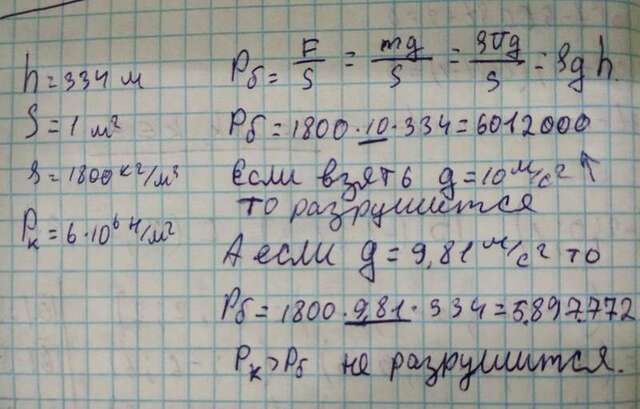 h = 334 м
S = 1 м²
ρ = 1800 кг/м³
Pк = 6·10⁶ Н/м²
Pб = F/S = mg/S = ρVg/S = ρgh.
Pб = 1800·10·334 = 6012000
Если взять g = 10 м/с² ↑
то разрушится
А если g = 9,81 м/с² то
Pб = 1800·9,81·334 = 5.897.772
Pк > Pб не разрушится.